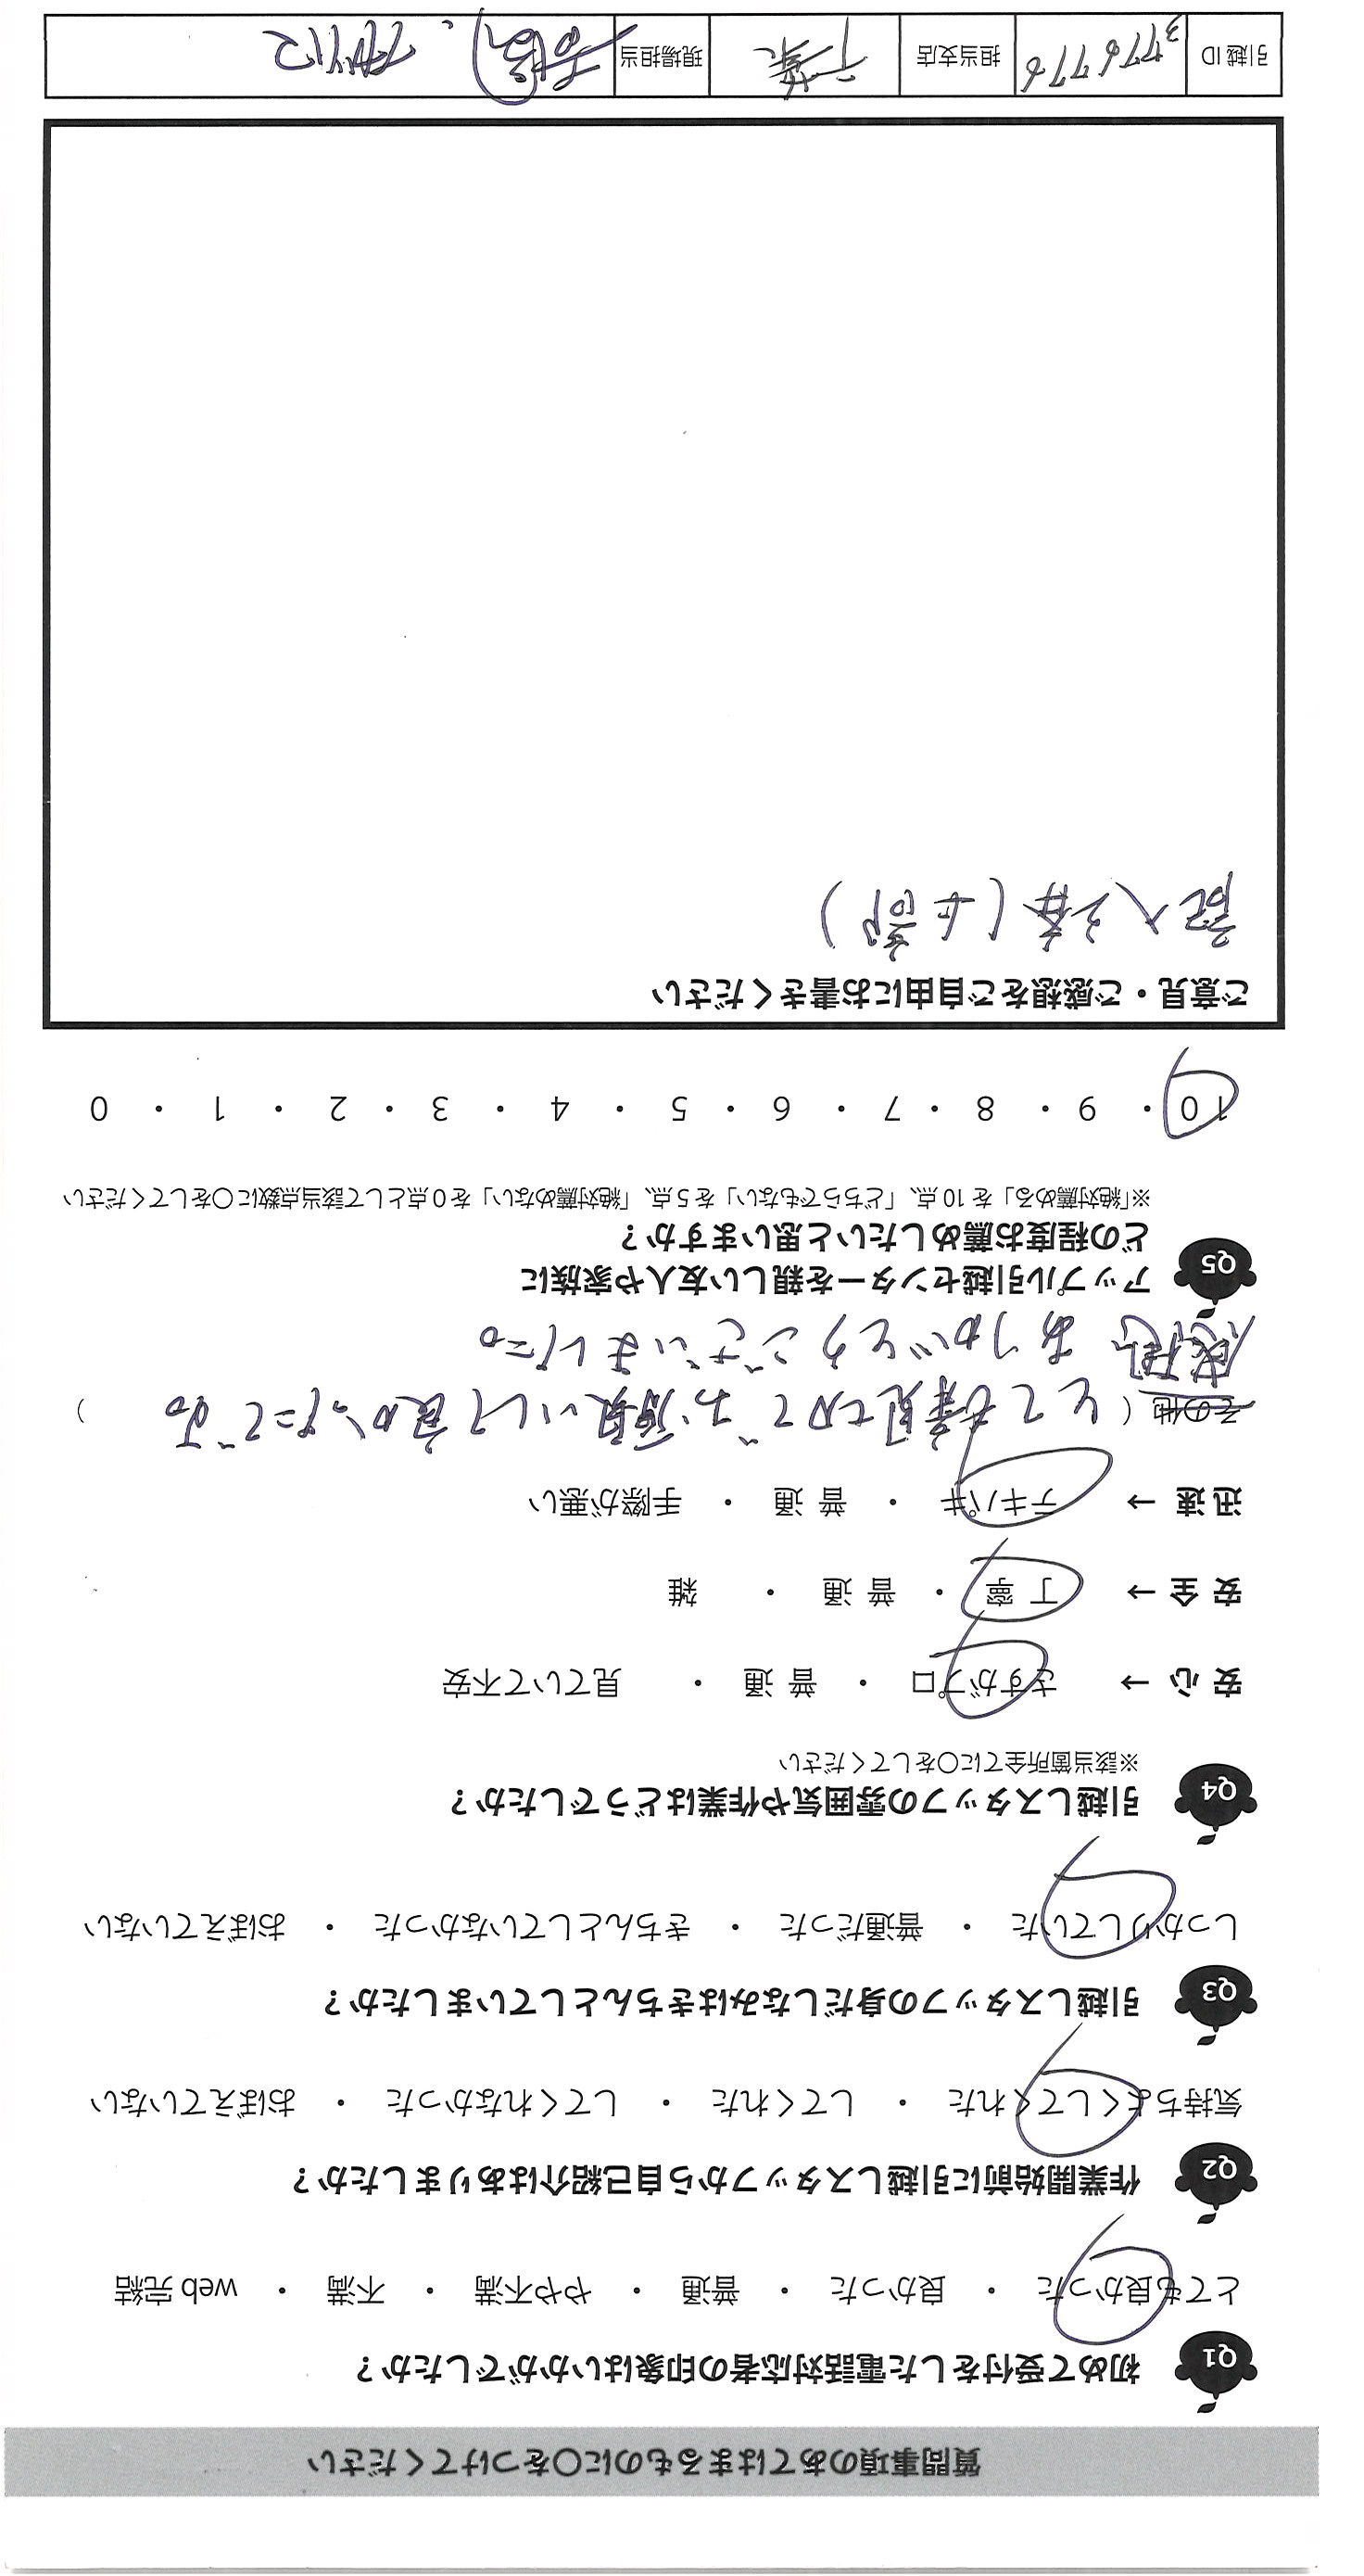 質問事項のあてはまるものに○をつけてください
Q1 初めて受付をした電話対応者の印象はいかがでしたか?
とても良かった ・ 良かった ・ 普通 ・ やや不満 ・ 不満 ・ web 完結
Q2 作業開始前に引越しスタッフから自己紹介はありましたか?
気持ちよくしてくれた ・ してくれた ・ してくれなかった ・ おぼえていない
Q3 引越しスタッフの身だしなみはきちんとしていましたか?
しっかりしていた ・ 普通だった ・ きちんとしていなかった ・ おぼえていない
Q4 引越しスタッフの雰囲気や作業はどうでしたか?
※該当箇所全てに○をしてください
安心 → さすがプロ ・ 普通 ・ 見ていて不安
安全 → 丁寧 ・ 普通 ・ 雑
迅速 → テキパキ ・ 普通 ・ 手際が悪い
その他 ( とても素晴 お願いして良かったです。 )
ありがとうございました。
Q5 アップル引越センターを親しい友人や家族に
どの程度お薦めしたいと思いますか?
※「絶対薦める」を10点、「どちらでもない」を5点、「絶対薦めない」を0点として該当点数に○をしてください
10 ・ 9 ・ 8 ・ 7 ・ 6 ・ 5 ・ 4 ・ 3 ・ 2 ・ 1 ・ 0
ご意見・ご感想をご自由にお書きください
記入済(上部)
引越ID 3776776 担当支店 千葉 現場担当